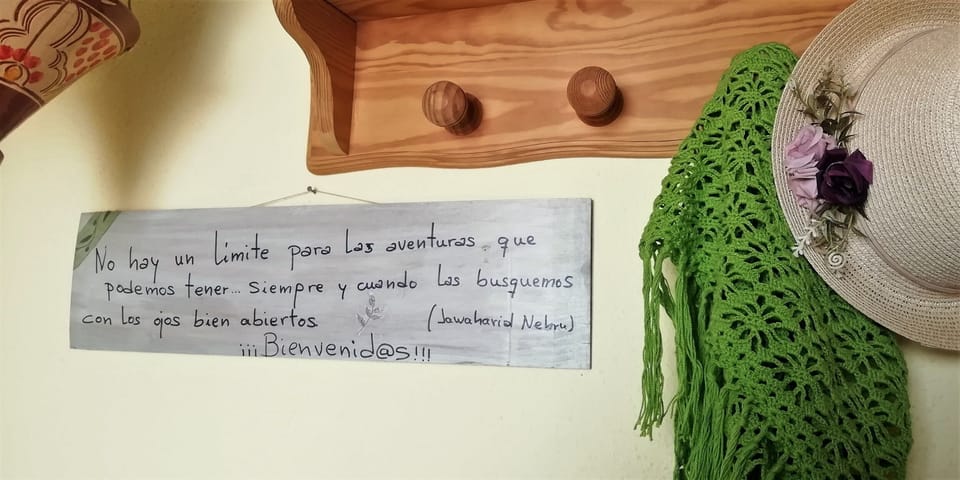 No hay un límite para las aventuras que
podemos tener... siempre y cuando las busquemos
con los ojos bien abiertos
(Jawaharid Nehru)
¡¡¡Bienvenid@s!!!